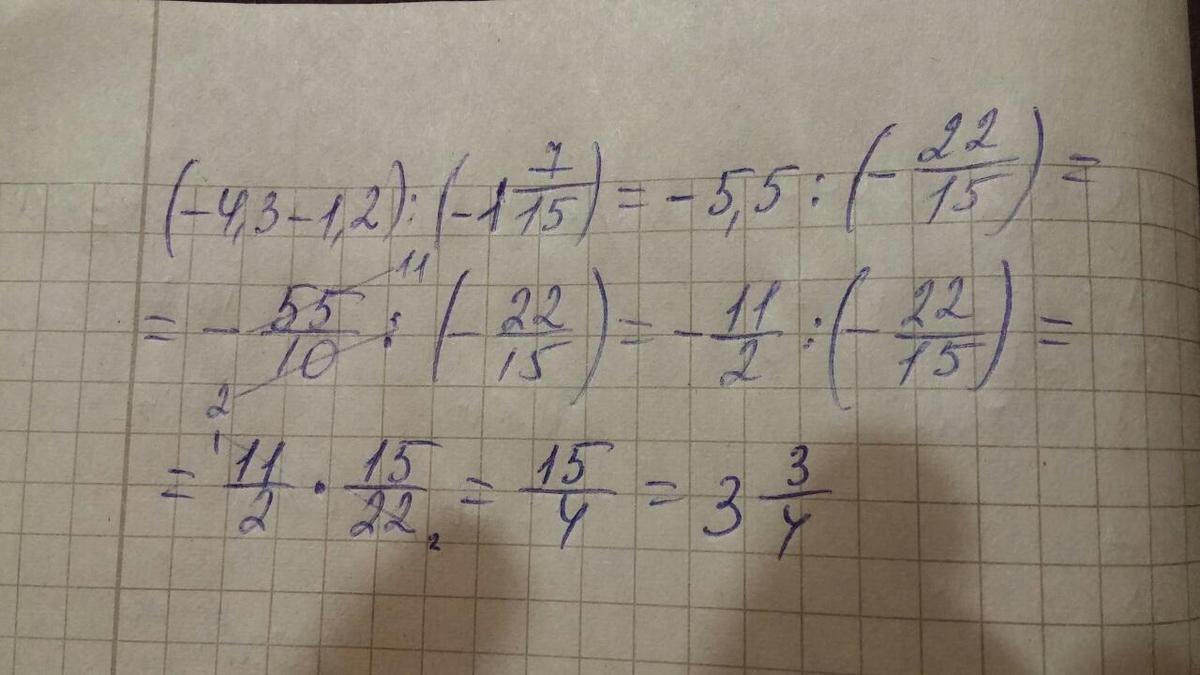 (-4,3-1,2):(-1 7/15) = -5,5:(-22/15) =
= -55/10 11 2 : (-22/15) = -11/2 : (-22/15) =
= 1 11/2 · 15/22 2 = 15/4 = 3 3/4